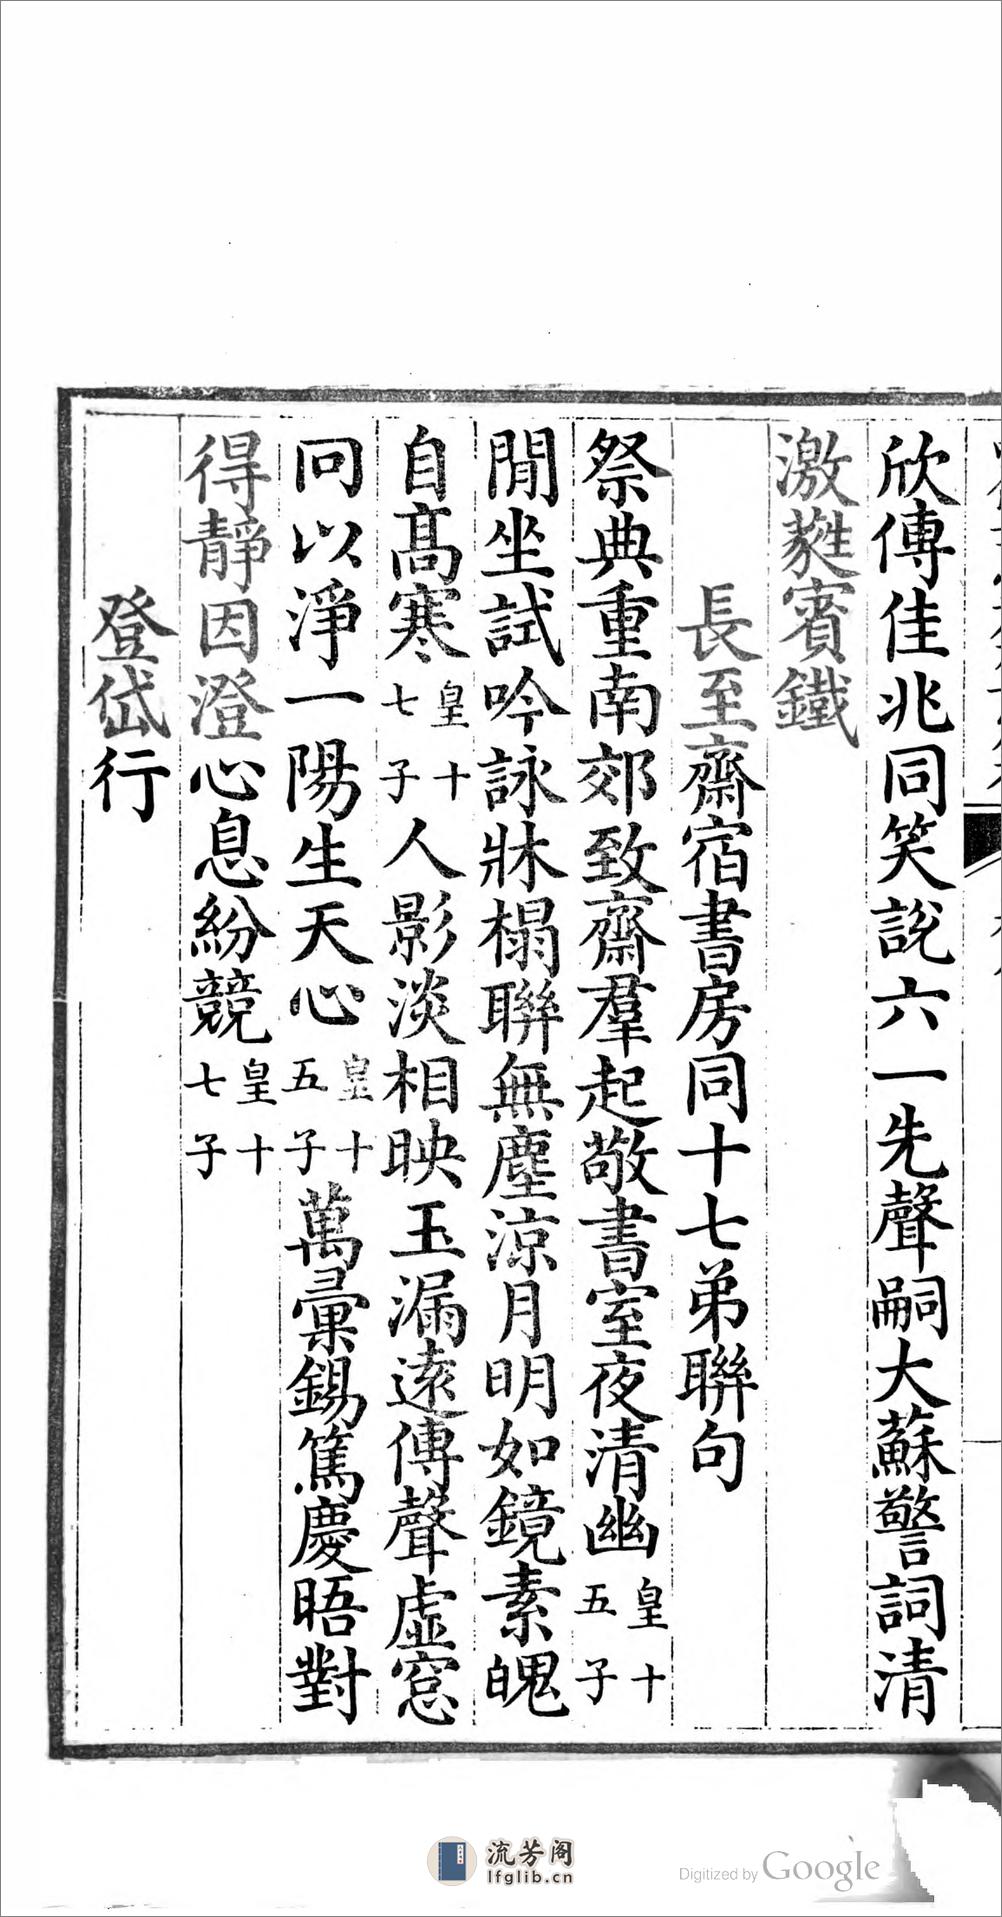 欣傳佳兆同笑說六一先聲嗣大蘇警詞清
激蕤賓鐵
長至齋宿書房同十七弟聯句
祭典重南郊致齋羣起敬書室夜清幽皇十五子
閒坐試吟詠牀榻聯無塵涼月明如鏡素魄
自高寒皇十七子人影淡相映玉漏遠傳聲虛窓
問以淨一陽生天心皇十五子萬彙錫篤慶晤對
得靜因澄心息紛競皇十七子
登岱行
流芳阁
lfglib.cn
Digitized by Google